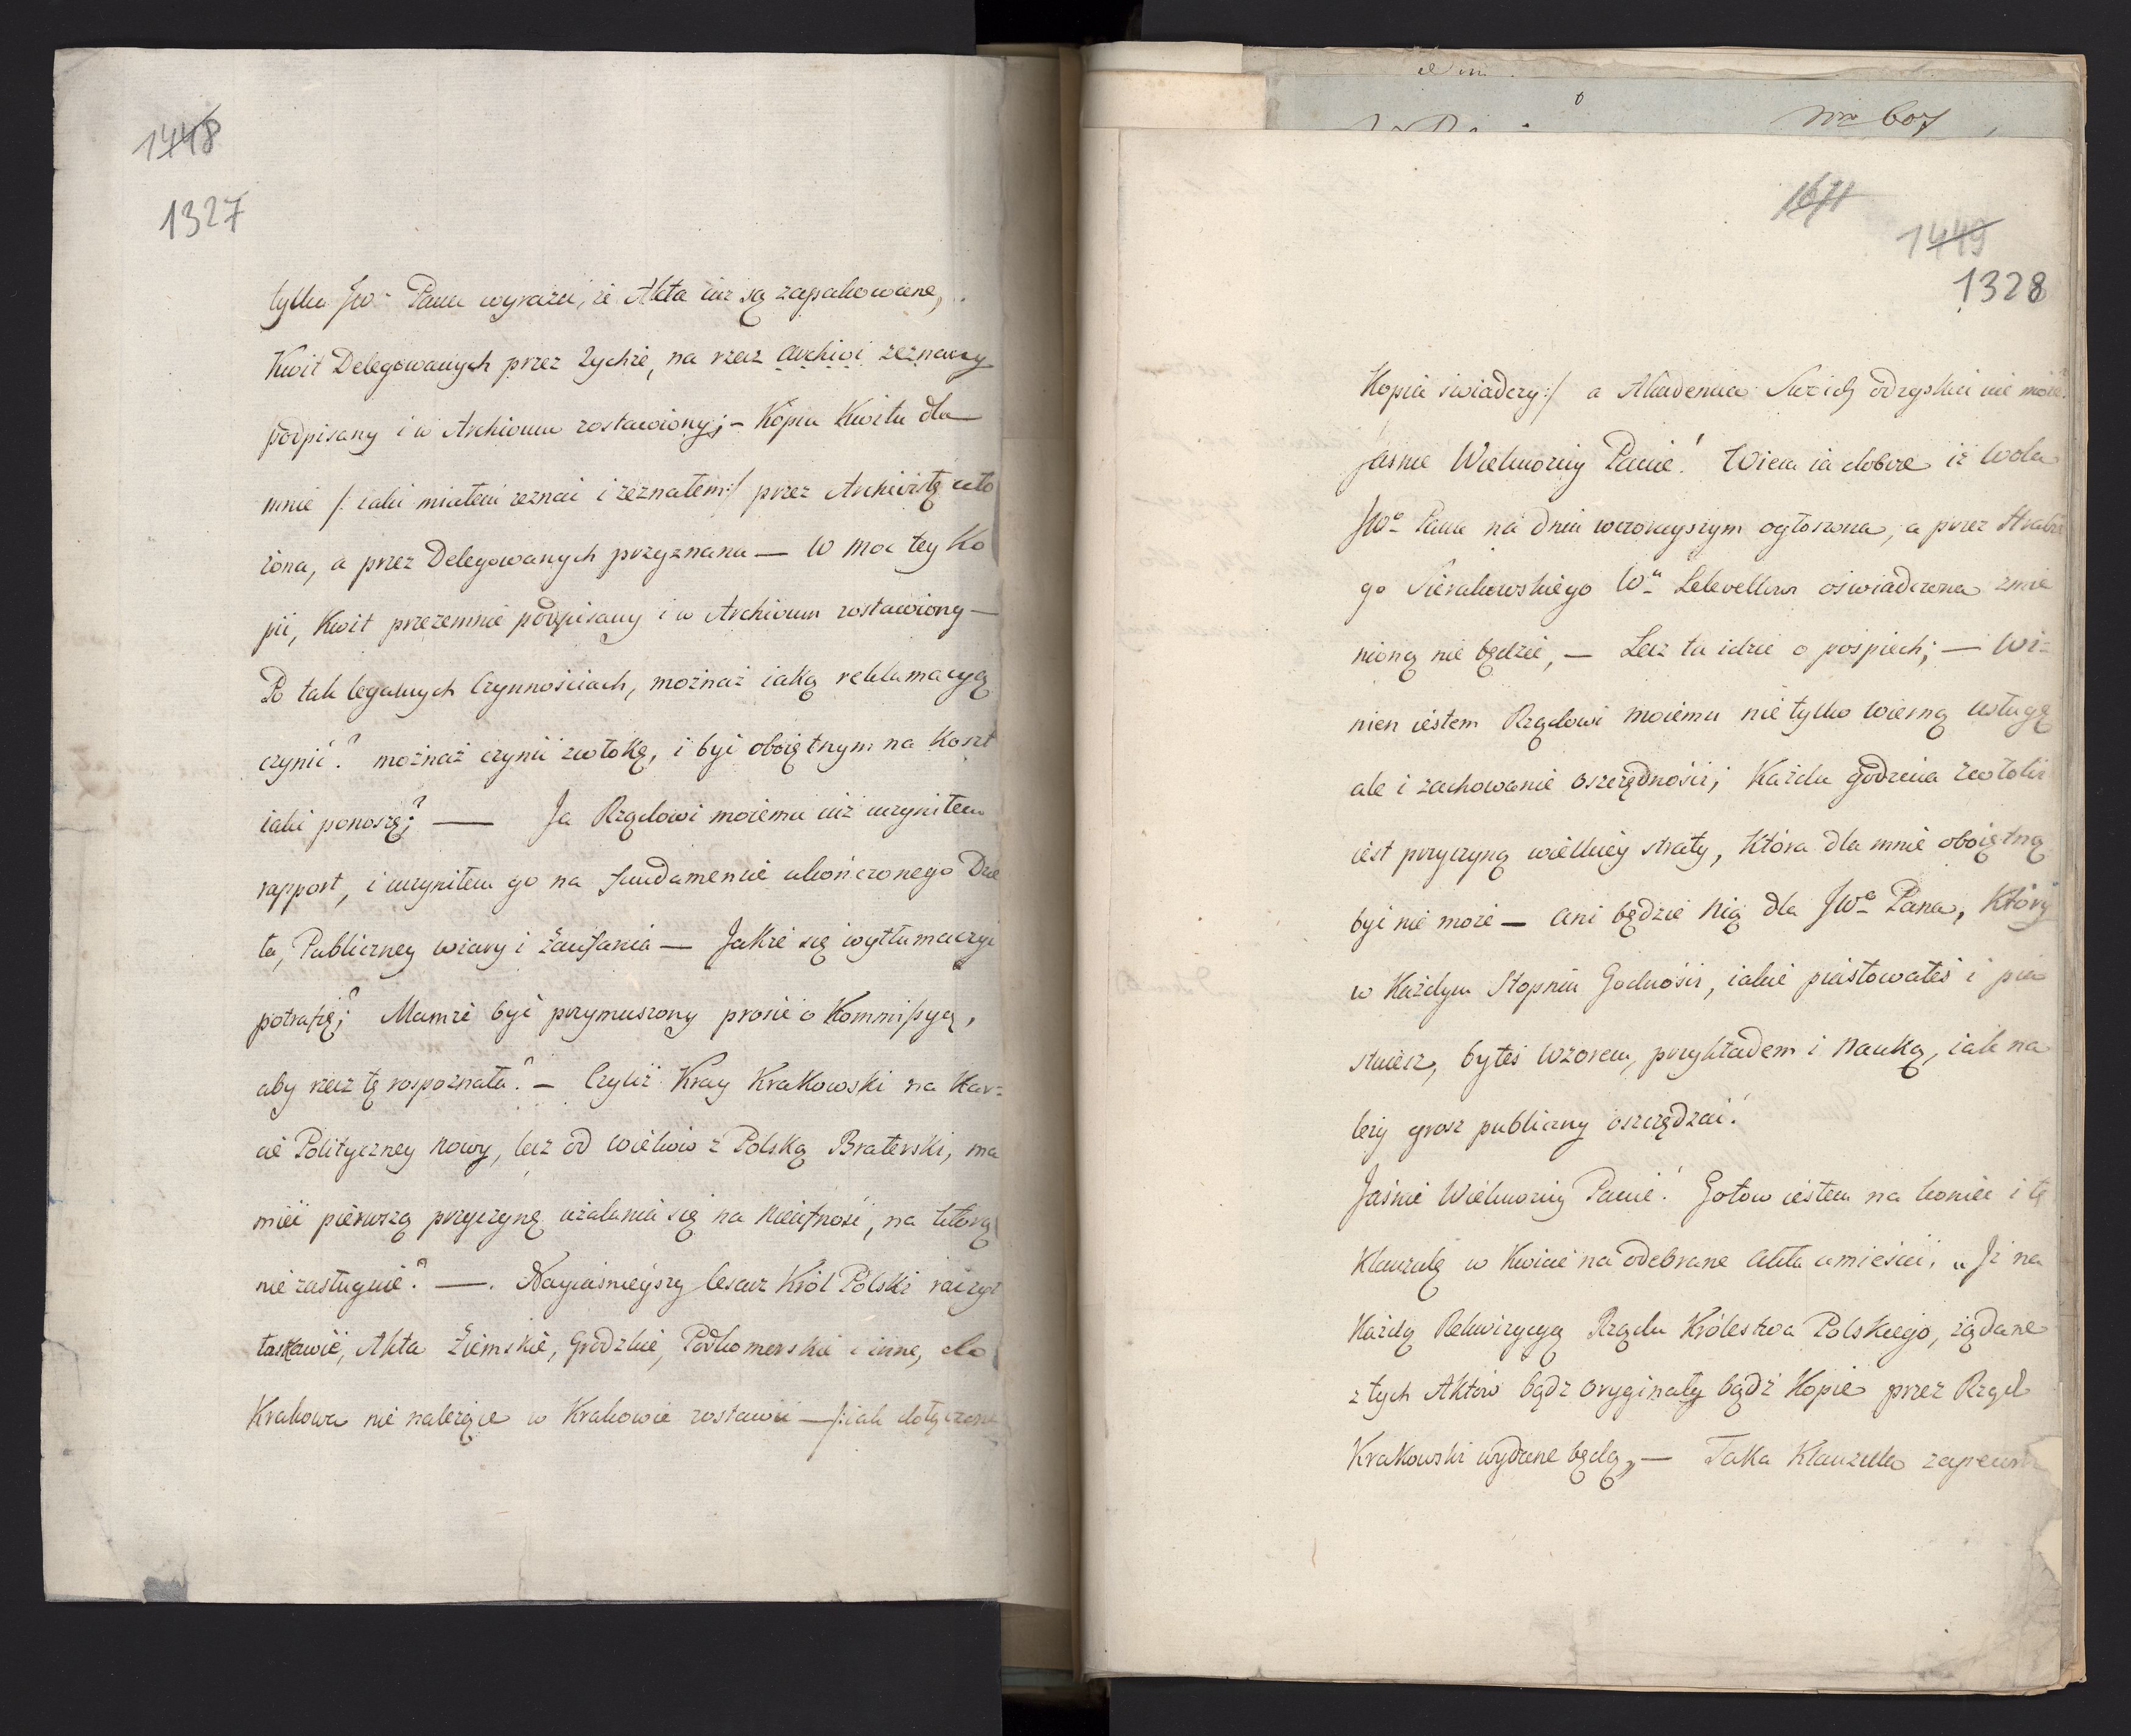 1448
1327
tylko JW Panu wyrazić, że Akta iuż są zapakowane,
Kwit Delegowanych przez tychże, na rzecz Archiwi zeznany
podpisany i w Archivum zostawiony; – Kopia Kwitu dla
mnie /: iaki miałem zeznać i zeznałem :/ przez Archiwistę uło
żona, a przez Delegowanych przyznana — W moc tey Ko
pii, Kwit przezemnie podpisany i w Archivum zostawiony —
Po tak legalnych Czynnościach, możnaż iaką reklamacyą
czynić? możnaż czynić zwłokę, i być oboiętnym na Koszt
iaki ponoszę? — Ja Rządowi moiemu iuż uczyniłem
rapport, i uczyniłem go na fundamencie ukończonego Dzie
ła, Publiczney wiary i Zaufania — Jakże się wytłumaczyć
potrafię? Mamże być przymuszony prosić o Kommissyą,
aby rzecz tę rospoznała? – Czyliż Kray Krakowski na Kar=
cie Polityczney nowy, lecz od wieków z Polską Braterski, ma
mieć pierwszą przyczynę użalania się na nieufność, na którą
nie zasługuie? —. Nayiaśnieyszy Cesarz Król Polski raczył
łaskawie, Akta Ziemskie, Grodzkie, Podkomorskie i inne, do
Krakowa nie należące w Krakowie zostawić — /: iak dołączona
Nro 607
1671
1449
1328
Kopia świadczy :/ a Akademia Swoich odzyskać nie może.
Jaśnie Wielmożny Panie! Wiem ia dobrze iż wola
JWo Pana na dniu wczorayszym ogłoszona, a przez Hrabie
go Sierakowskiego Wu Lelevellowi oświadczona zmie
nioną nie będzie, — Lecz tu idzie o pośpiech; — Wi=
nien iestem Rządowi moiemu nie tylko wierną usługę
ale i zachowanie oszczędności; Każda godzina zwłoki
iest przyczyną wielkiey straty, Która dla mnie oboiętną
być nie może — ani będzie nią dla JWo Pana, Który
w Każdym Stopniu Godności, iakie piastowałeś i pia
stuiesz, byłeś wzorem, przykładem i nauką, iak na
leży grosz publiczny oszczędzać!
Jaśnie Wielmożny Panie! Gotow iestem na koniec i tę
Klauzulę w Kwicie na odebrane Akta umieścić. „Iż na
Każdą Rekwizycyą Rządu Królestwa Polskiego, żądane
z tych Aktów bądź oryginały bądź Kopie przez Rząd
Krakowski wydane będą„ — Taka Klauzula